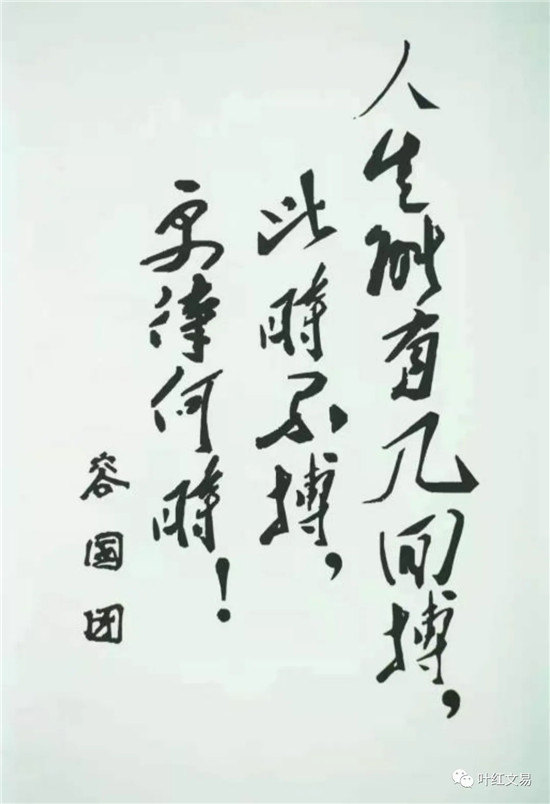 人生能有几回搏，
此時不搏，
更待何時！
容国团
叶红文易